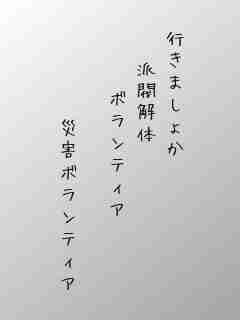 行きましょか
派閥解体
ボランティア
災害ボランティア